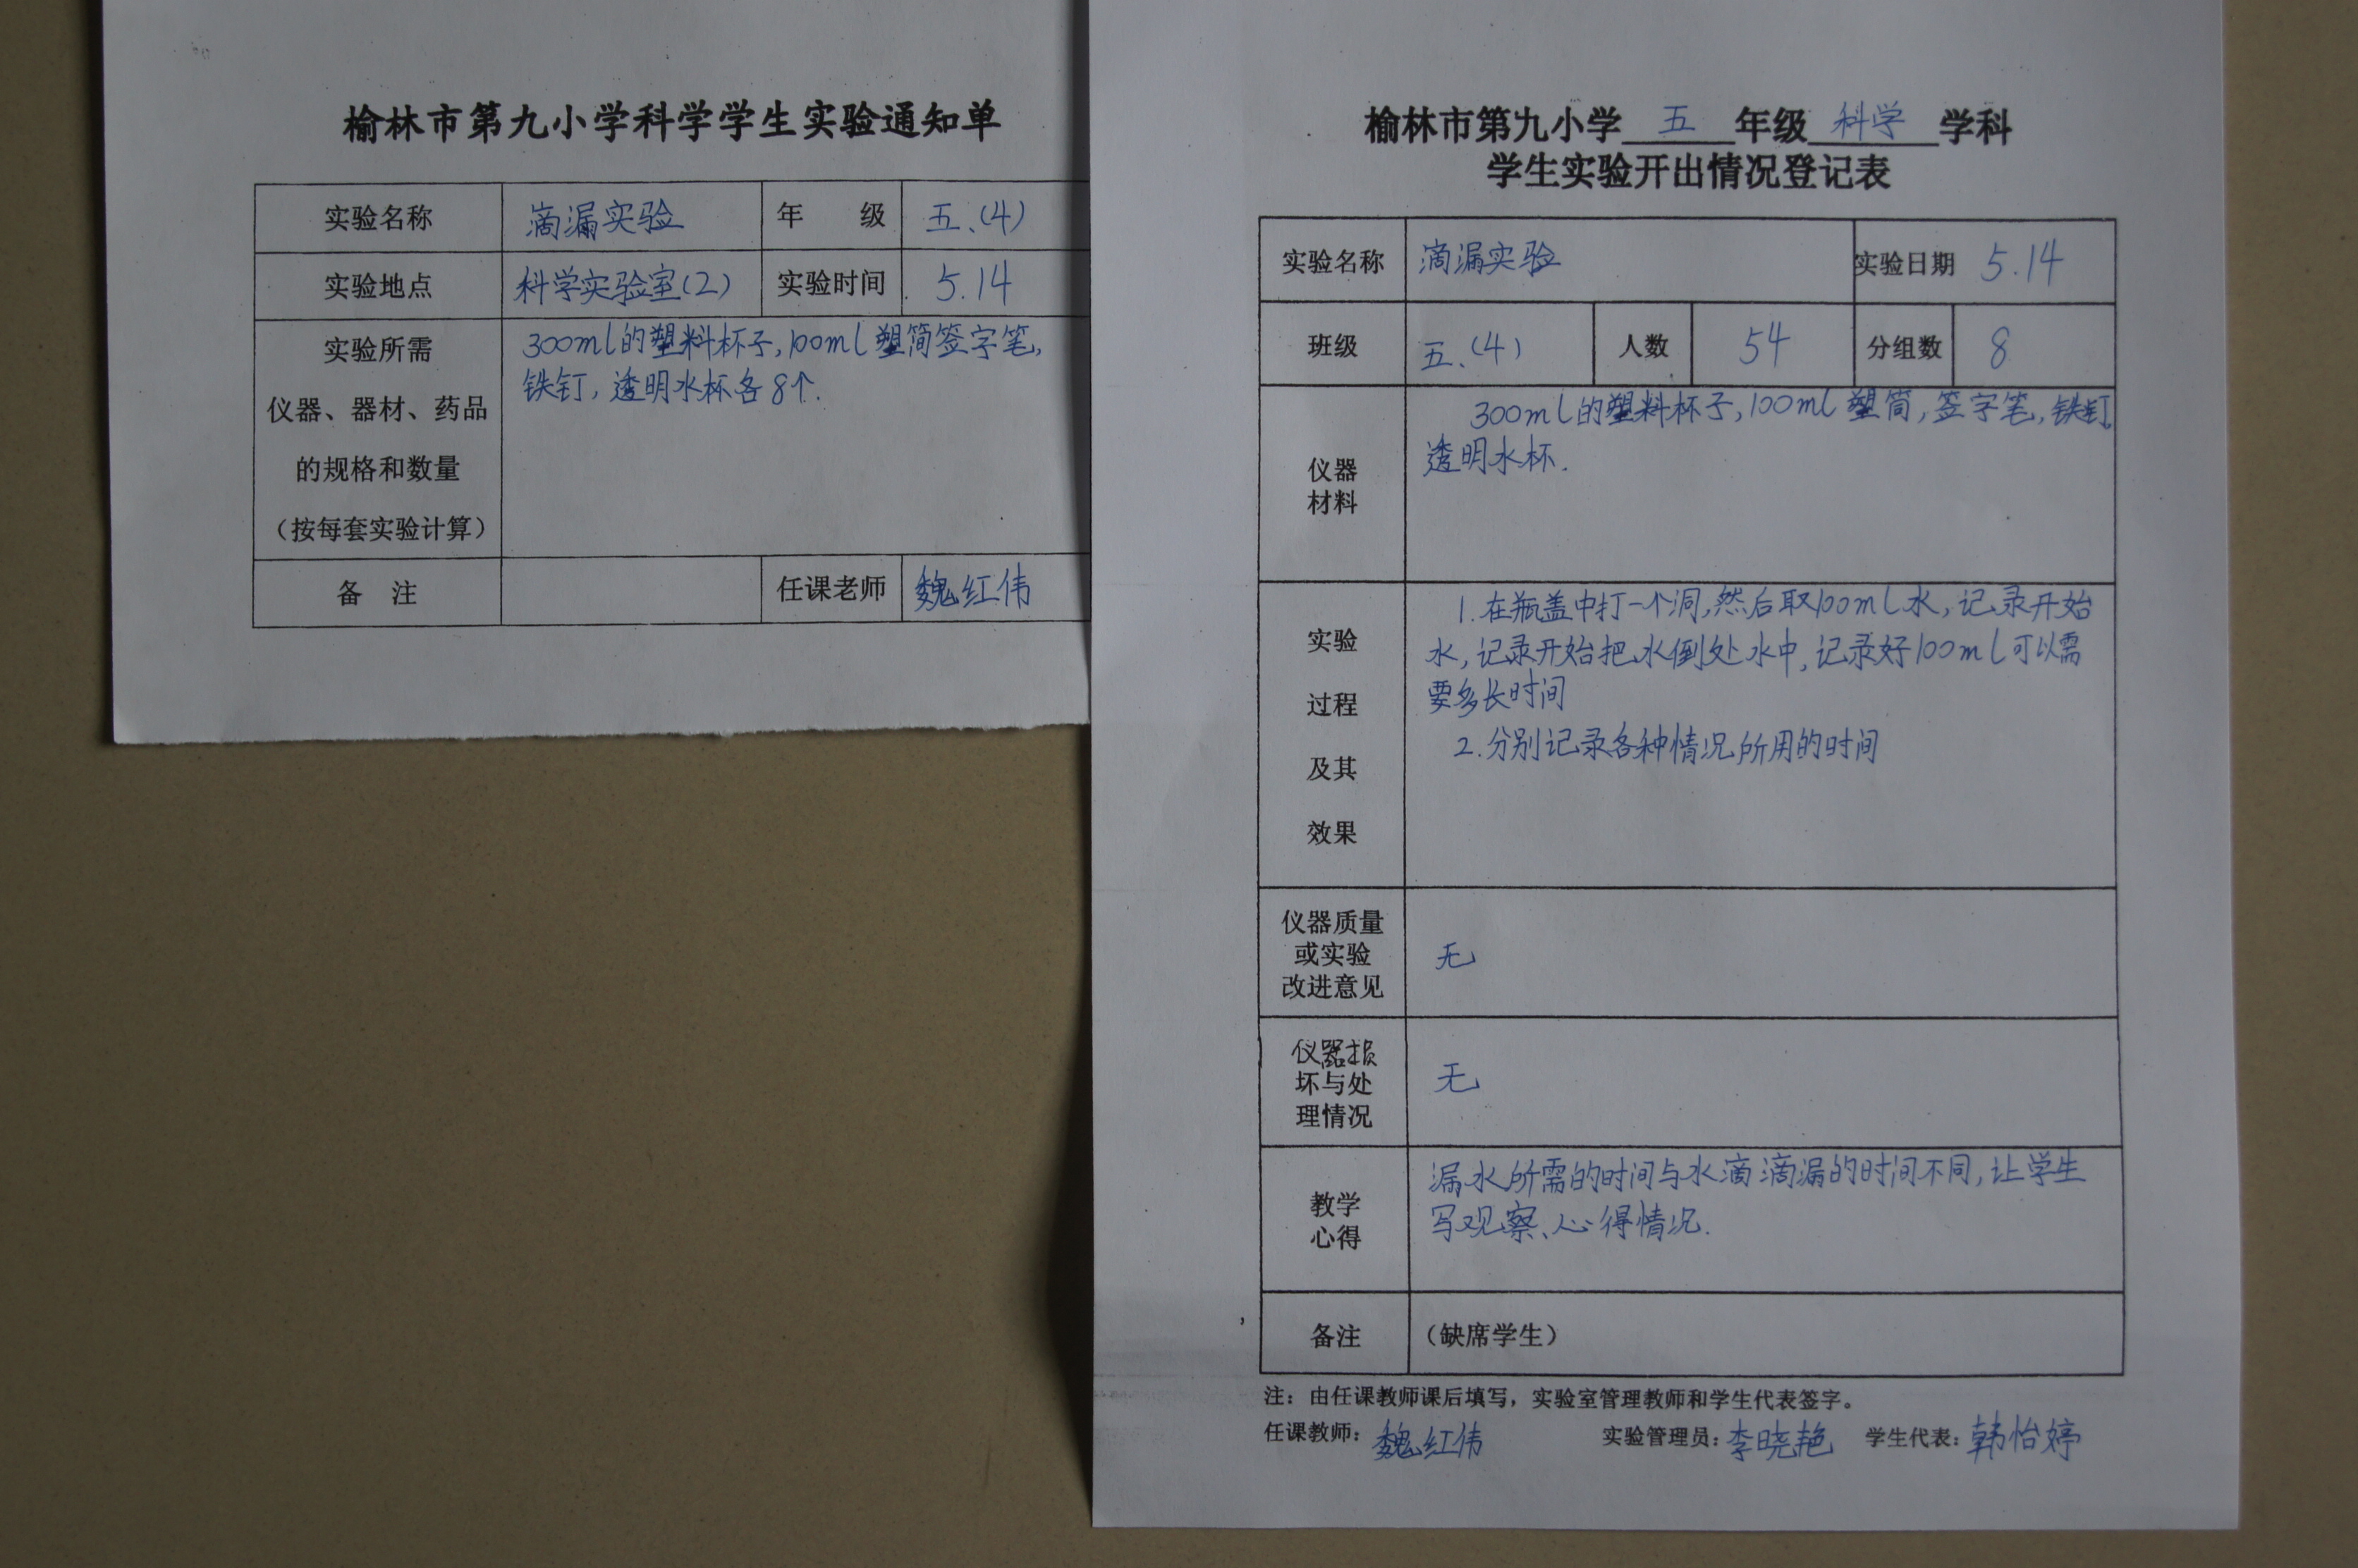 榆林市第九小学科学学生实验通知单
实验名称 滴漏实验 年 级 五.(4)
实验地点 科学实验室(2) 实验时间 5.14
实验所需
仪器、器材、药品
的规格和数量
（按每套实验计算）
300ml的塑料杯子,100ml塑筒签字笔,
铁钉,透明水杯各8个.
备 注 任课老师 魏红伟
榆林市第九小学 五 年级 科学 学科
学生实验开出情况登记表
实验名称 滴漏实验 实验日期 5.14
班级 五.(4) 人数 54 分组数 8
仪器
材料
300ml的塑料杯子,100ml塑筒,签字笔,铁钉,
透明水杯.
实验
过程
及其
效果
1.在瓶盖中打一个洞,然后取100ml水,记录开始
水,记录开始把水倒处水中,记录好100ml可以需
要多长时间
2.分别记录各种情况所用的时间
仪器质量
或实验
改进意见
无
仪器损
坏与处
理情况
无
教学
心得
漏水所需的时间与水滴滴漏的时间不同,让学生
写观察、心得情况.
备注 （缺席学生）
注：由任课教师课后填写，实验室管理教师和学生代表签字。
任课教师：魏红伟 实验管理员：李晓艳 学生代表：韩怡婷